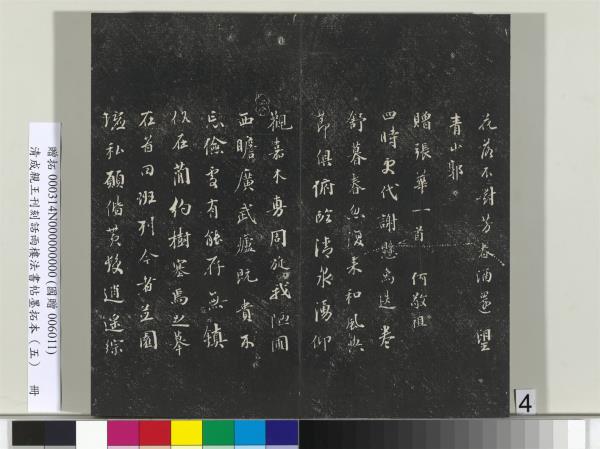 花落不對芳春酒還望
青山郭
贈張華一首 何敬祖
四時更代謝懸象迭卷
舒暮春忽復來和風與
節俱俯臨清泉湧仰
觀嘉木敷周旋我陋圃
西瞻廣武廬既貴不
忘儉處有能存無鎮
俗在簡約樹塞焉足摹
在昔同班列今者並園
墟私願偕黃髮逍遙綜
贈拓 000314N000000000 (國贈 006011)
清成親王刊刻詒晉樓法書帖墨拓本(五) 冊
4